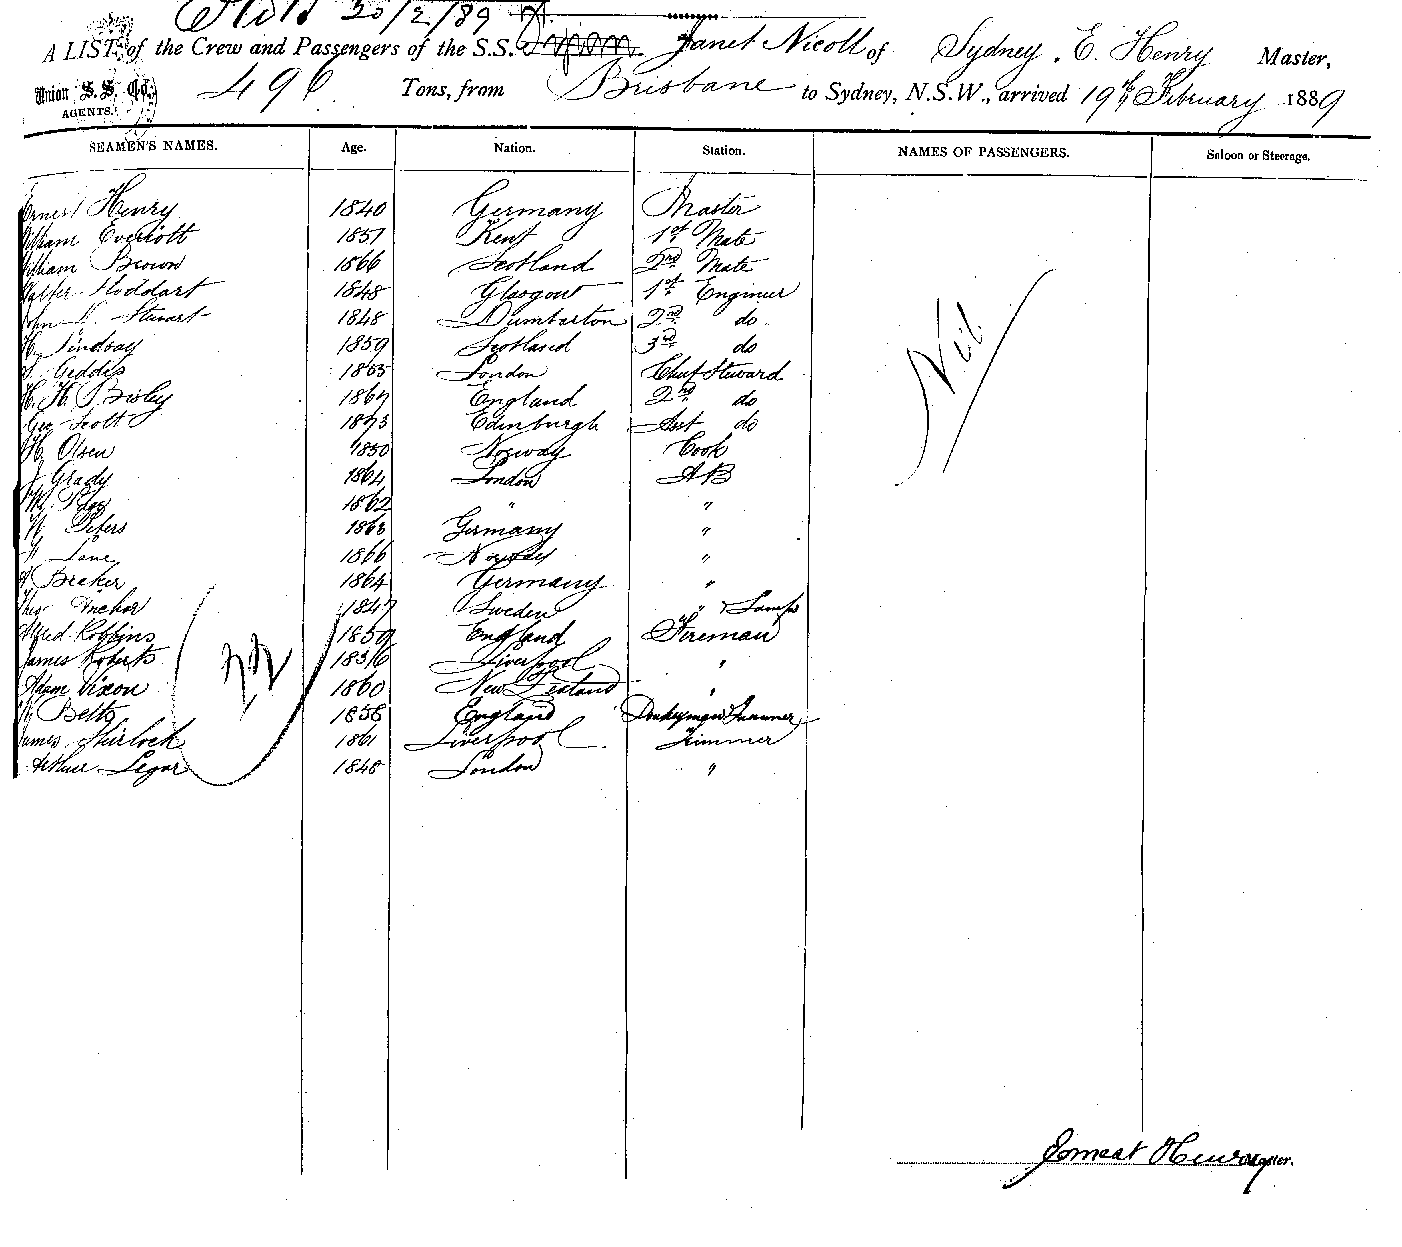 20/2/89
A LIST of the Crew and Passengers of the S.S. Janet Nicoll of Sydney, E. Henry Master,
Union S. S. Co.
AGENTS.
496 Tons, from Brisbane to Sydney, N.S.W., arrived 19th February 1889
SEAMEN'S NAMES. Age. Nation. Station. NAMES OF PASSENGERS. Saloon or Steerage.
Ernest Henry 1840 Germany Master
William Everiott 1857 Kent 1st Mate
William Brown 1866 Scotland 2nd Mate
Walter Hoddart 1848 Glasgow 1st Engineer
John Stewart 1848 Dumbarton 2nd do
Lindsay 1859 Scotland 3rd do
Geddes 1865 London Chief Steward
H. H. Bisley 1864 England 2nd do
Geo Scott 1873 Edinburgh Asst do
H. Olsen 1850 Norway Cook
J Grady 1864 London AB
1862 " "
Peters 1863 Germany "
Lane 1866 Norway "
Breker 1864 Germany "
Anchor 1847 Sweden " & Lamps
Alfred Robbins 1859 England Fireman
James Roberts 1836 Liverpool "
Adam Dixon 1860 New Zealand "
W Betts 1858 England
James Shirlock 1861 Liverpool Trimmer
Arthur Legar 1848 London "
Nil
22
Ernest Henry Master.